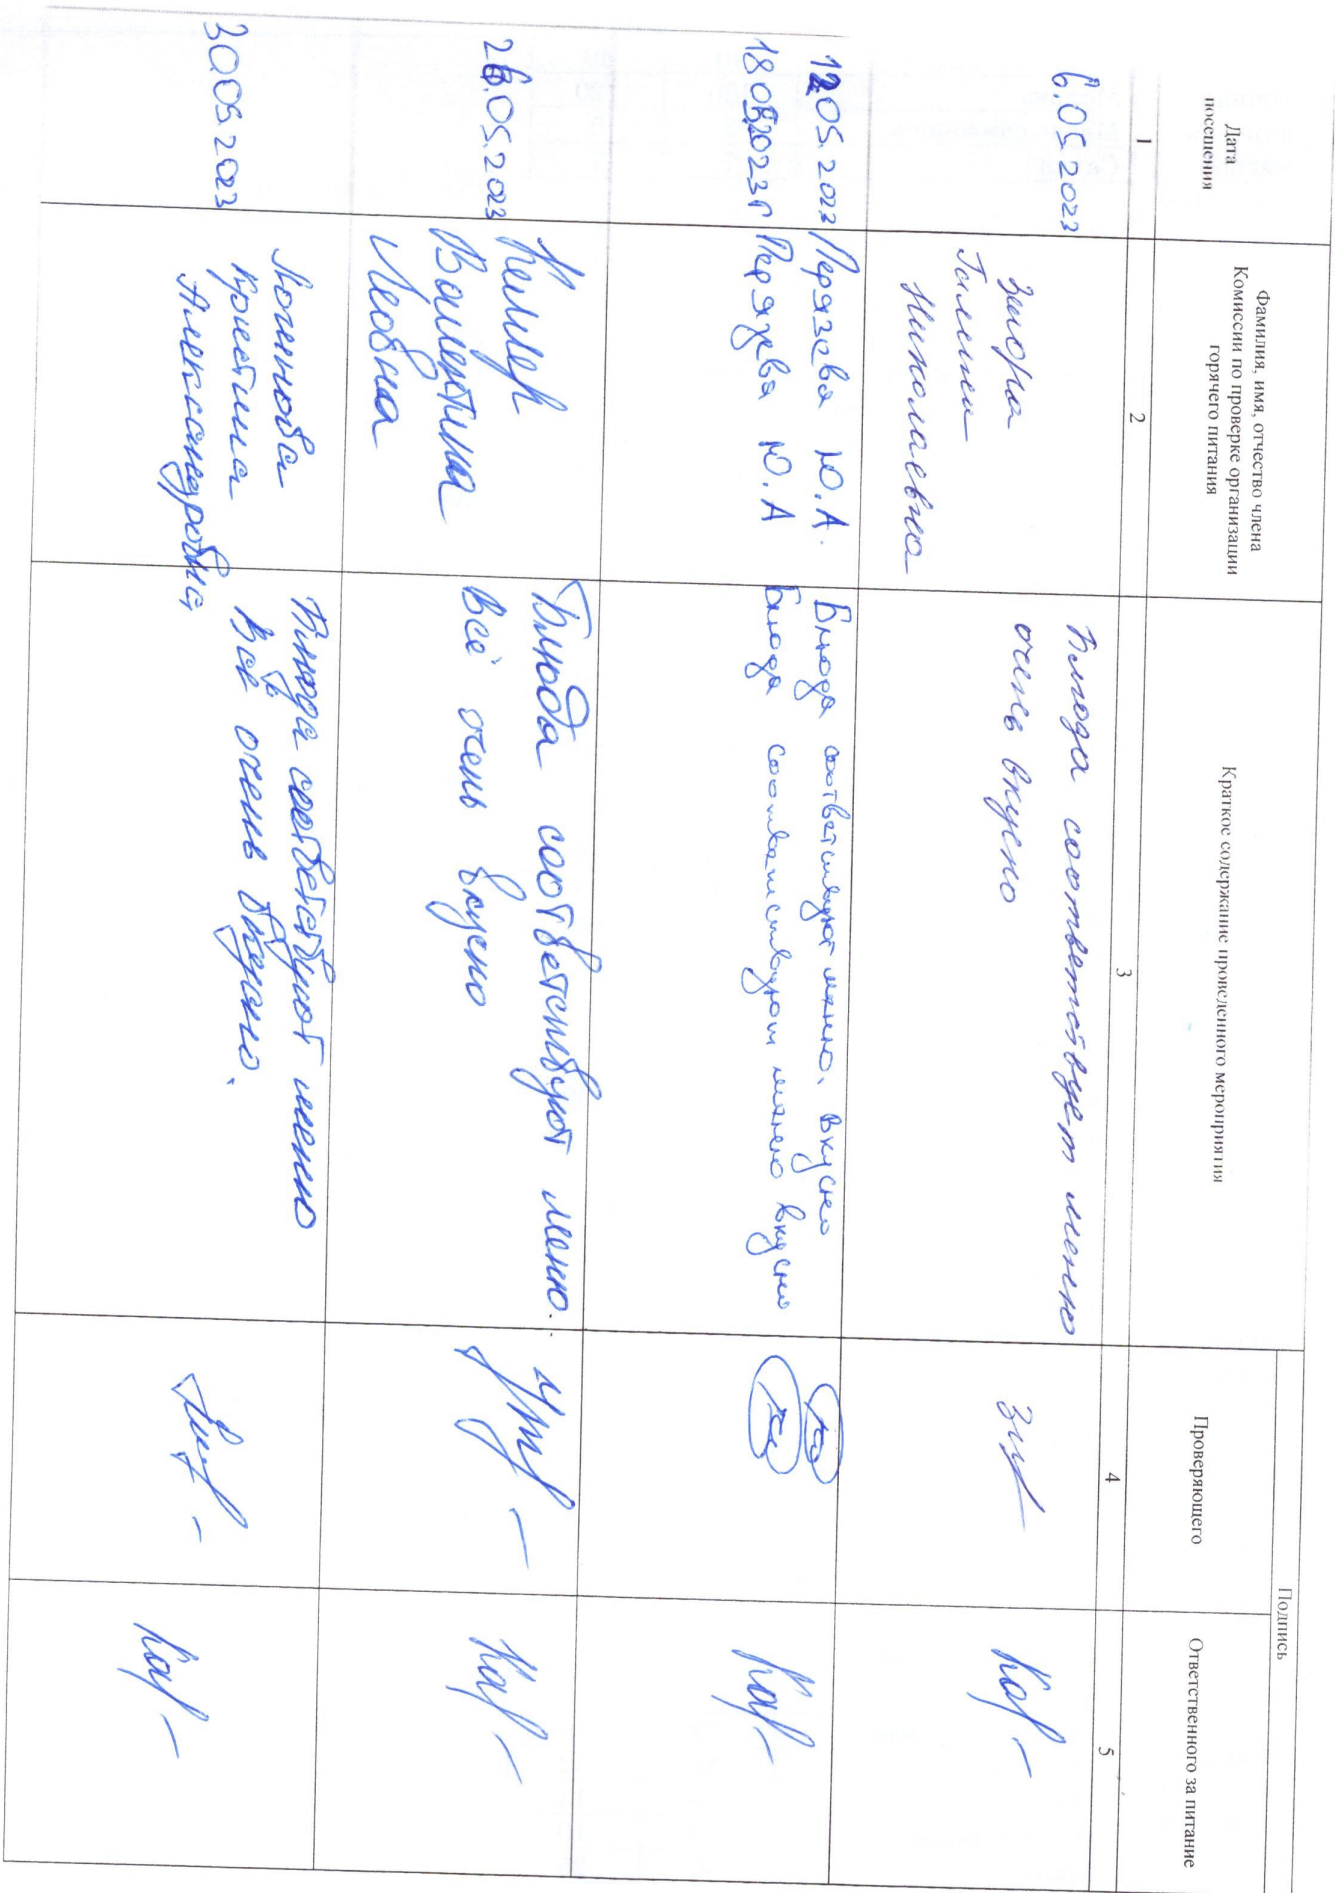 Дата
посещения
Фамилия, имя, отчество члена
Комиссии по проверке организации
горячего питания
Краткое содержание проведенного мероприятия
Подпись
Проверяющего
Ответственного за питание
1
2
3
4
5
6.05.2023
Галина
Николаевна
Блюда соответствует меню
очень вкусно
12.05.2023
Перязева Ю.А.
Блюда соответствуют меню. вкусно
18.05.2023г
Перязева Ю.А
Блюда соответствуют меню вкусно
26.05.2023
Келлер
Валентина
Леовна
Блюда соответствуют меню.
всё очень вкусно
30.05.2023
Логинова
Кристина
Александровна
Блюда соответствуют меню
Всё очень вкусно.